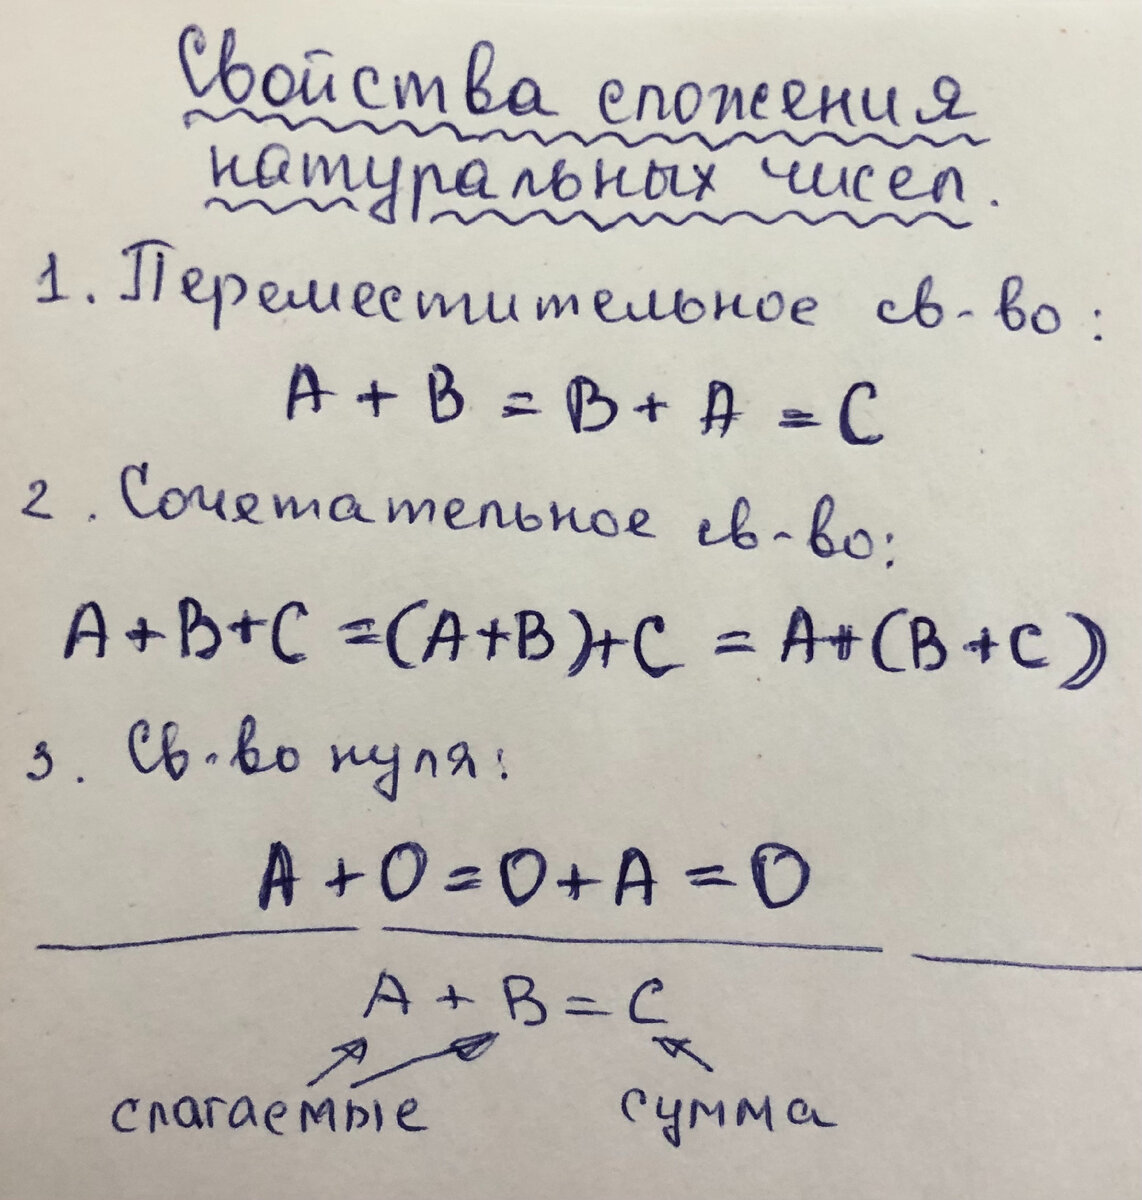 Свойства сложения
натуральных чисел.
1. Переместительное св-во:
A + B = B + A = C
2. Сочетательное св-во:
A+B+C =(A+B)+C = A+(B+C)
3. Св-во нуля:
A+0=0+A=0
A + B = C
слагаемые сумма